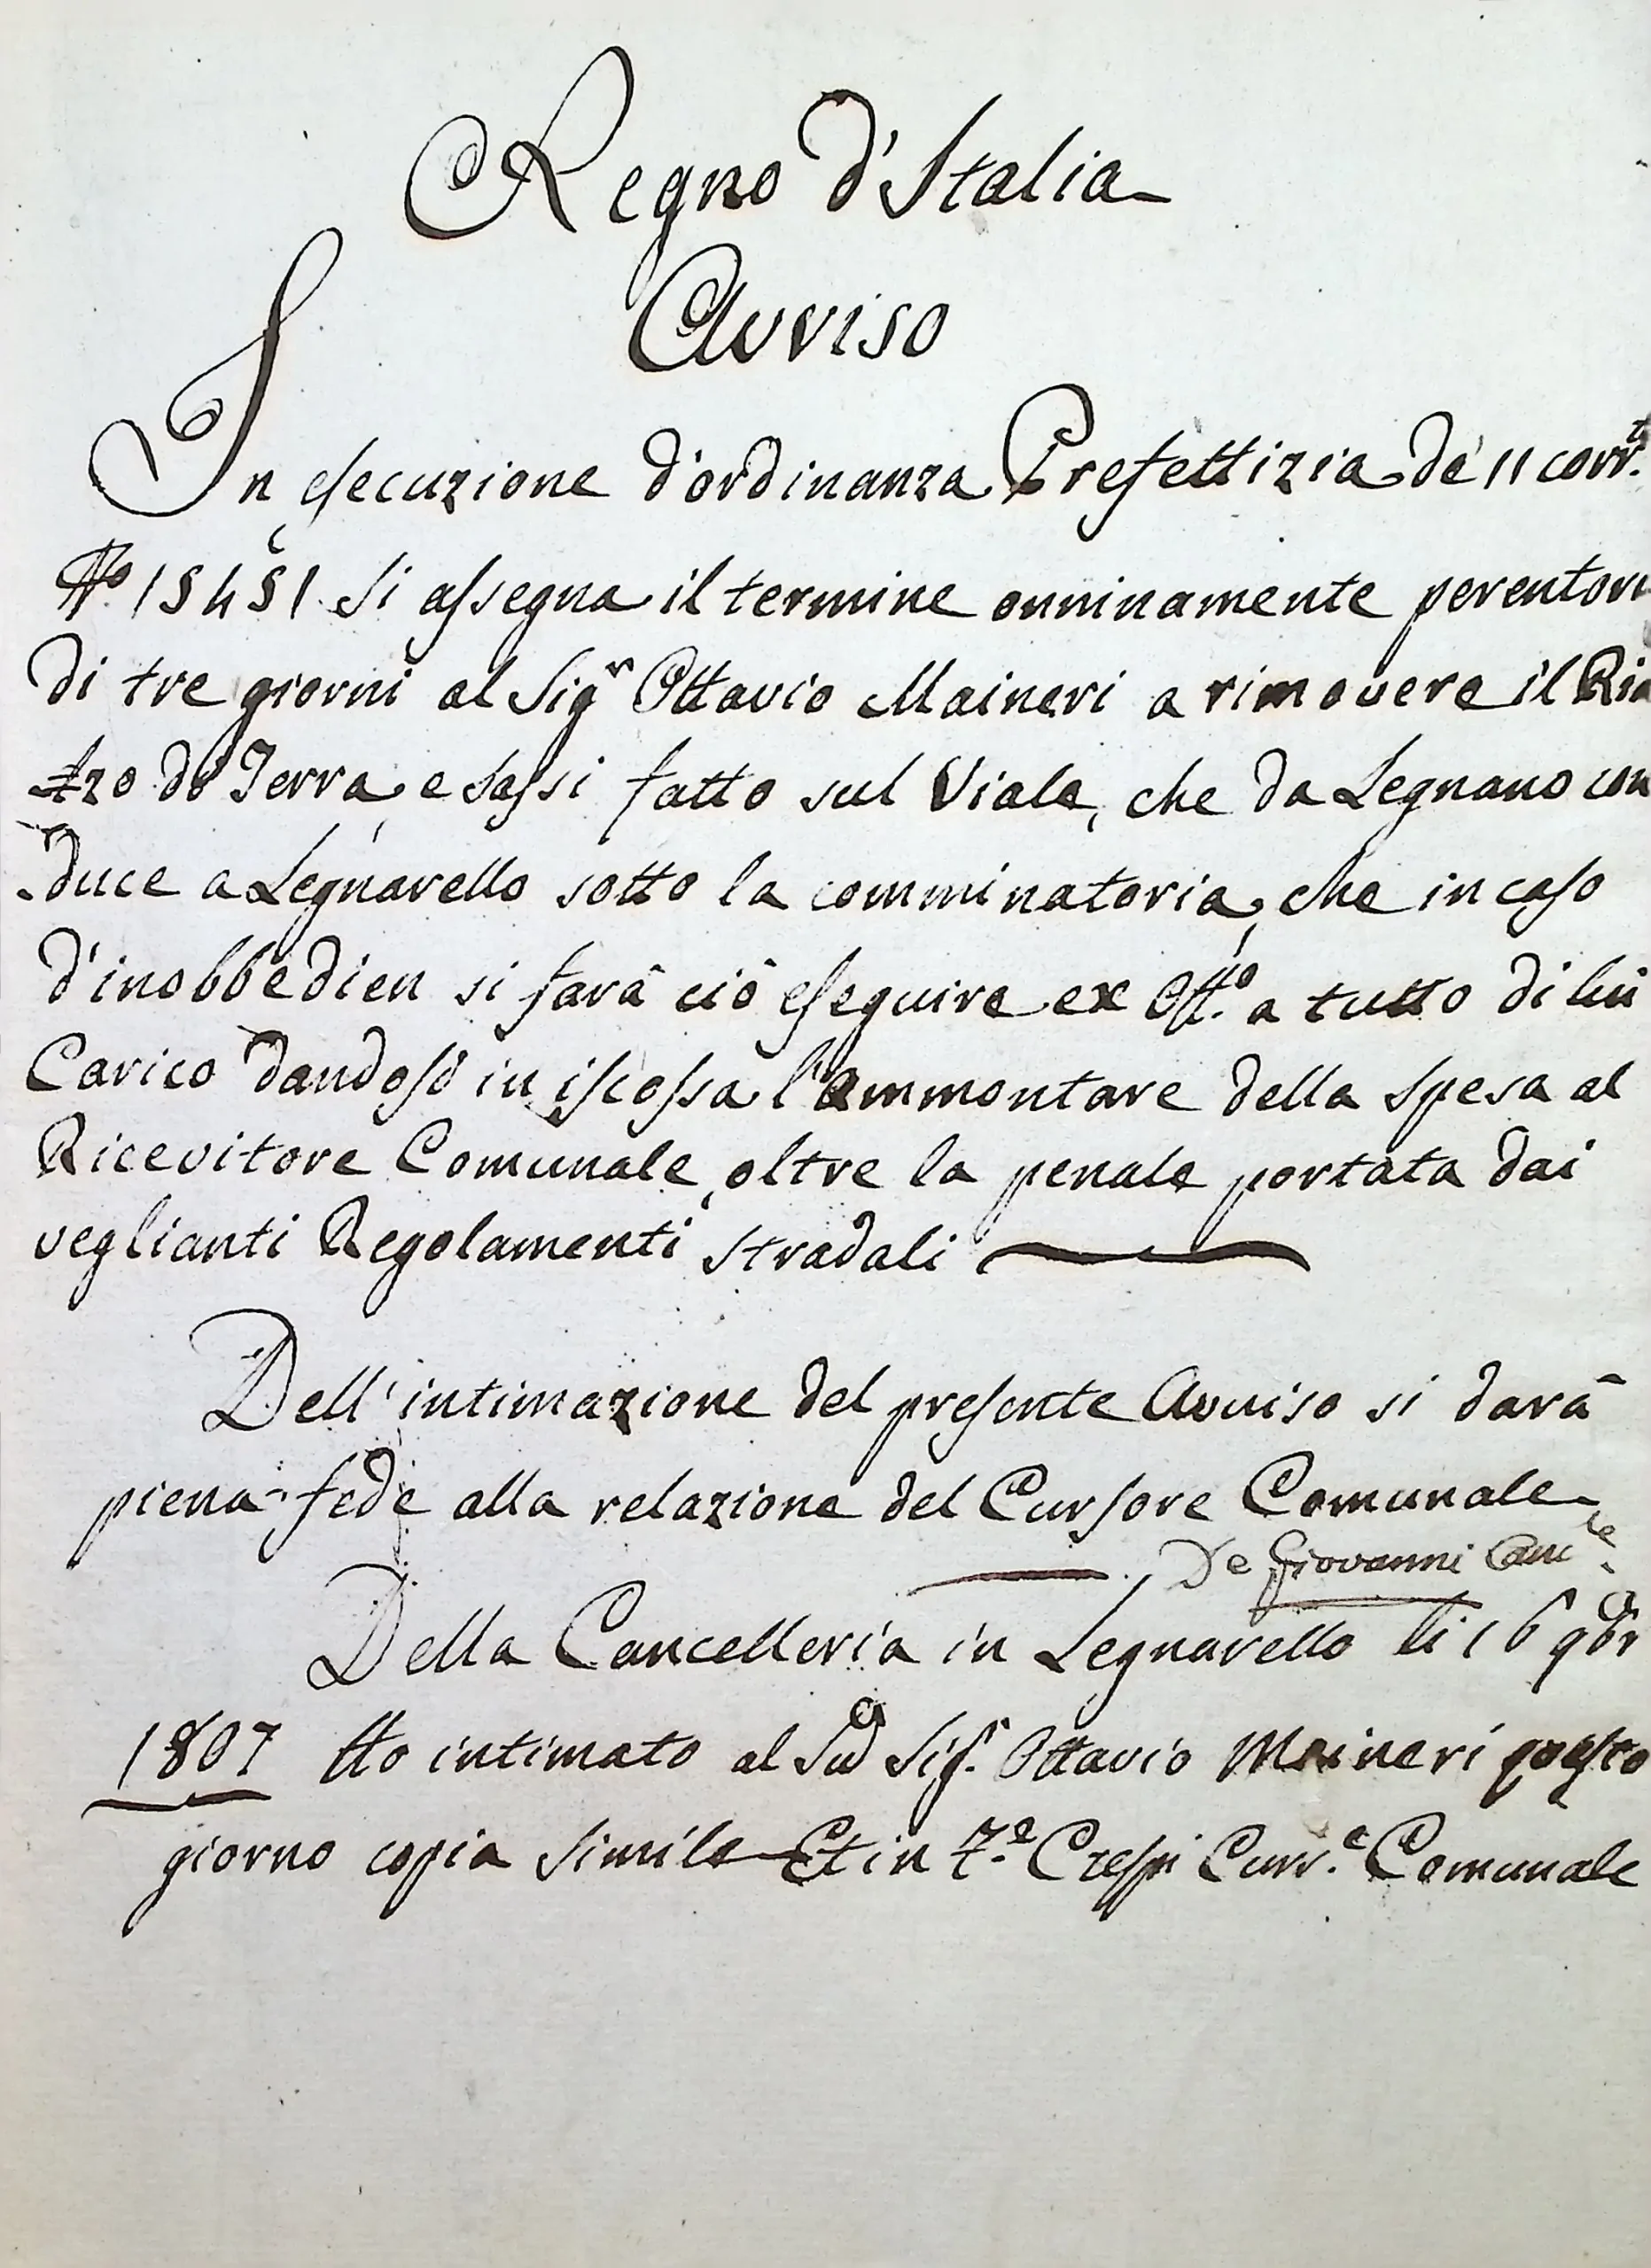 Regno d'Italia
Avviso
In esecuzione d'ordinanza Prefettizia de' 11 corr.t
N.o 15451 Si assegna il termine onninamente perentori
di tre giorni al Sig.r Ottavio Maineri a rimovere il Ria
lzo di Terra, e sassi fatto sul Viale, che da Legnano con
duce a Legnarello sotto la comminatoria, che in caso
d'inobbedien si farà ciò eseguire ex Off.o a tutto di lui
Carico dandosi in iscossa l'ammontare della spesa al
Ricevitore Comunale, oltre la penale portata dai
veglianti Regolamenti stradali
Dell'intimazione del presente Avviso si darà
piena fede alla relazione del Cursore Comunale
De Giovanni Canc.le
Della Cancelleria in Legnarello li 16 9br
1807 Ho intimato al Sud Sig.r Ottavio Maineri questo
giorno copia simile Et in Crespi Curs.e Comunale